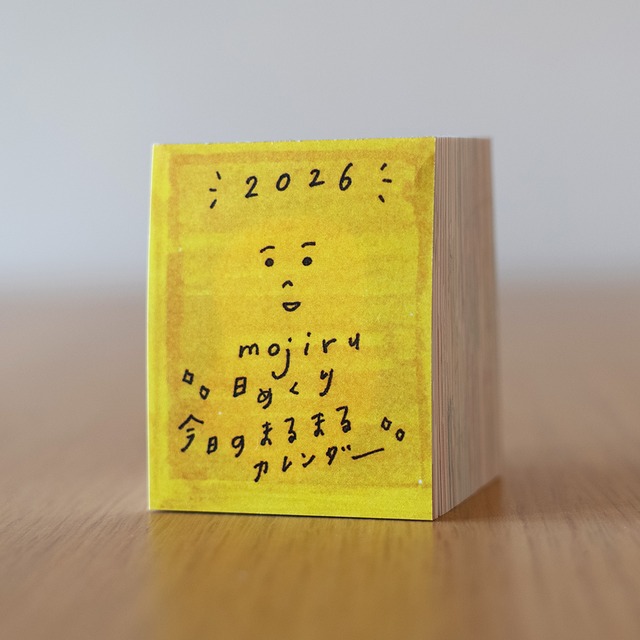 2026
mojiru
日めくり
今日のまるまる
カレンダー